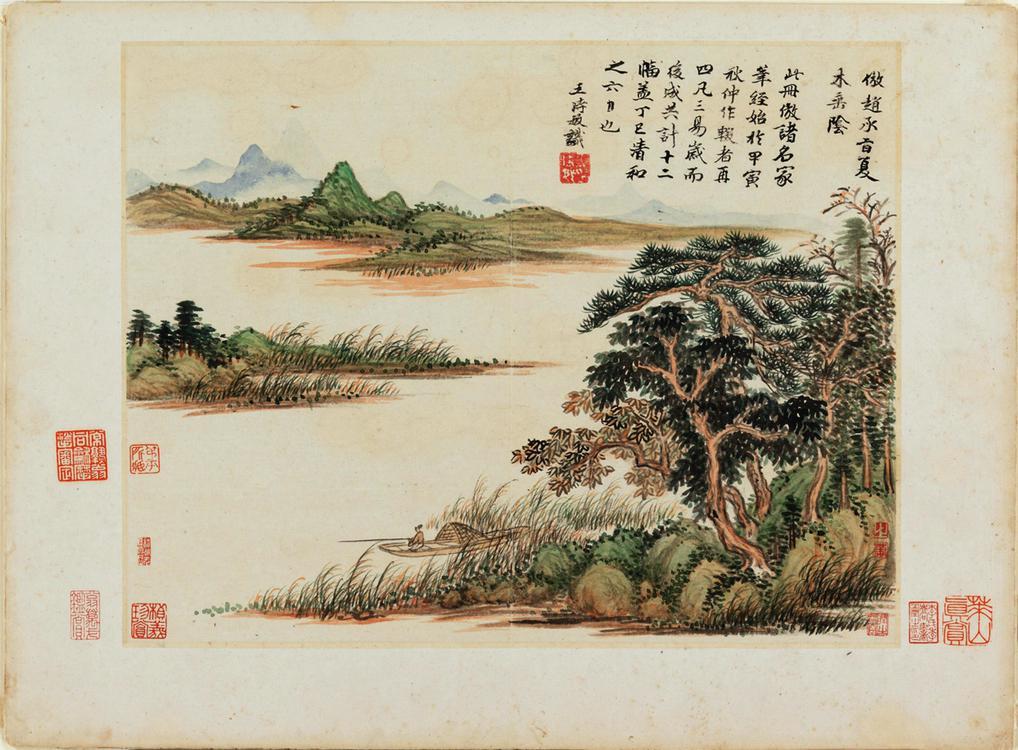 倣趙承旨夏
木垂陰
此冊倣諸名家
筆經始於甲寅
秋仲作輟者再
四凡三易歲而
後成共計十二
幅葢丁巳清和
之六日也
王時敏識
萊山
真賞